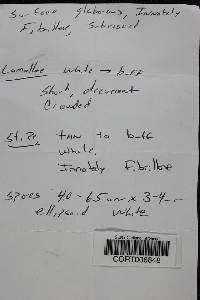 Surface glabrous, Innately
Fibrillose, Subviscid
Lamellae white → buff
Short, decurrent
Crowded
Stipe, tan to buff
whole,
Innately Fibrillose
Spores 4.0-6.5um x 3-4um
ellipsoid white
CORT006648